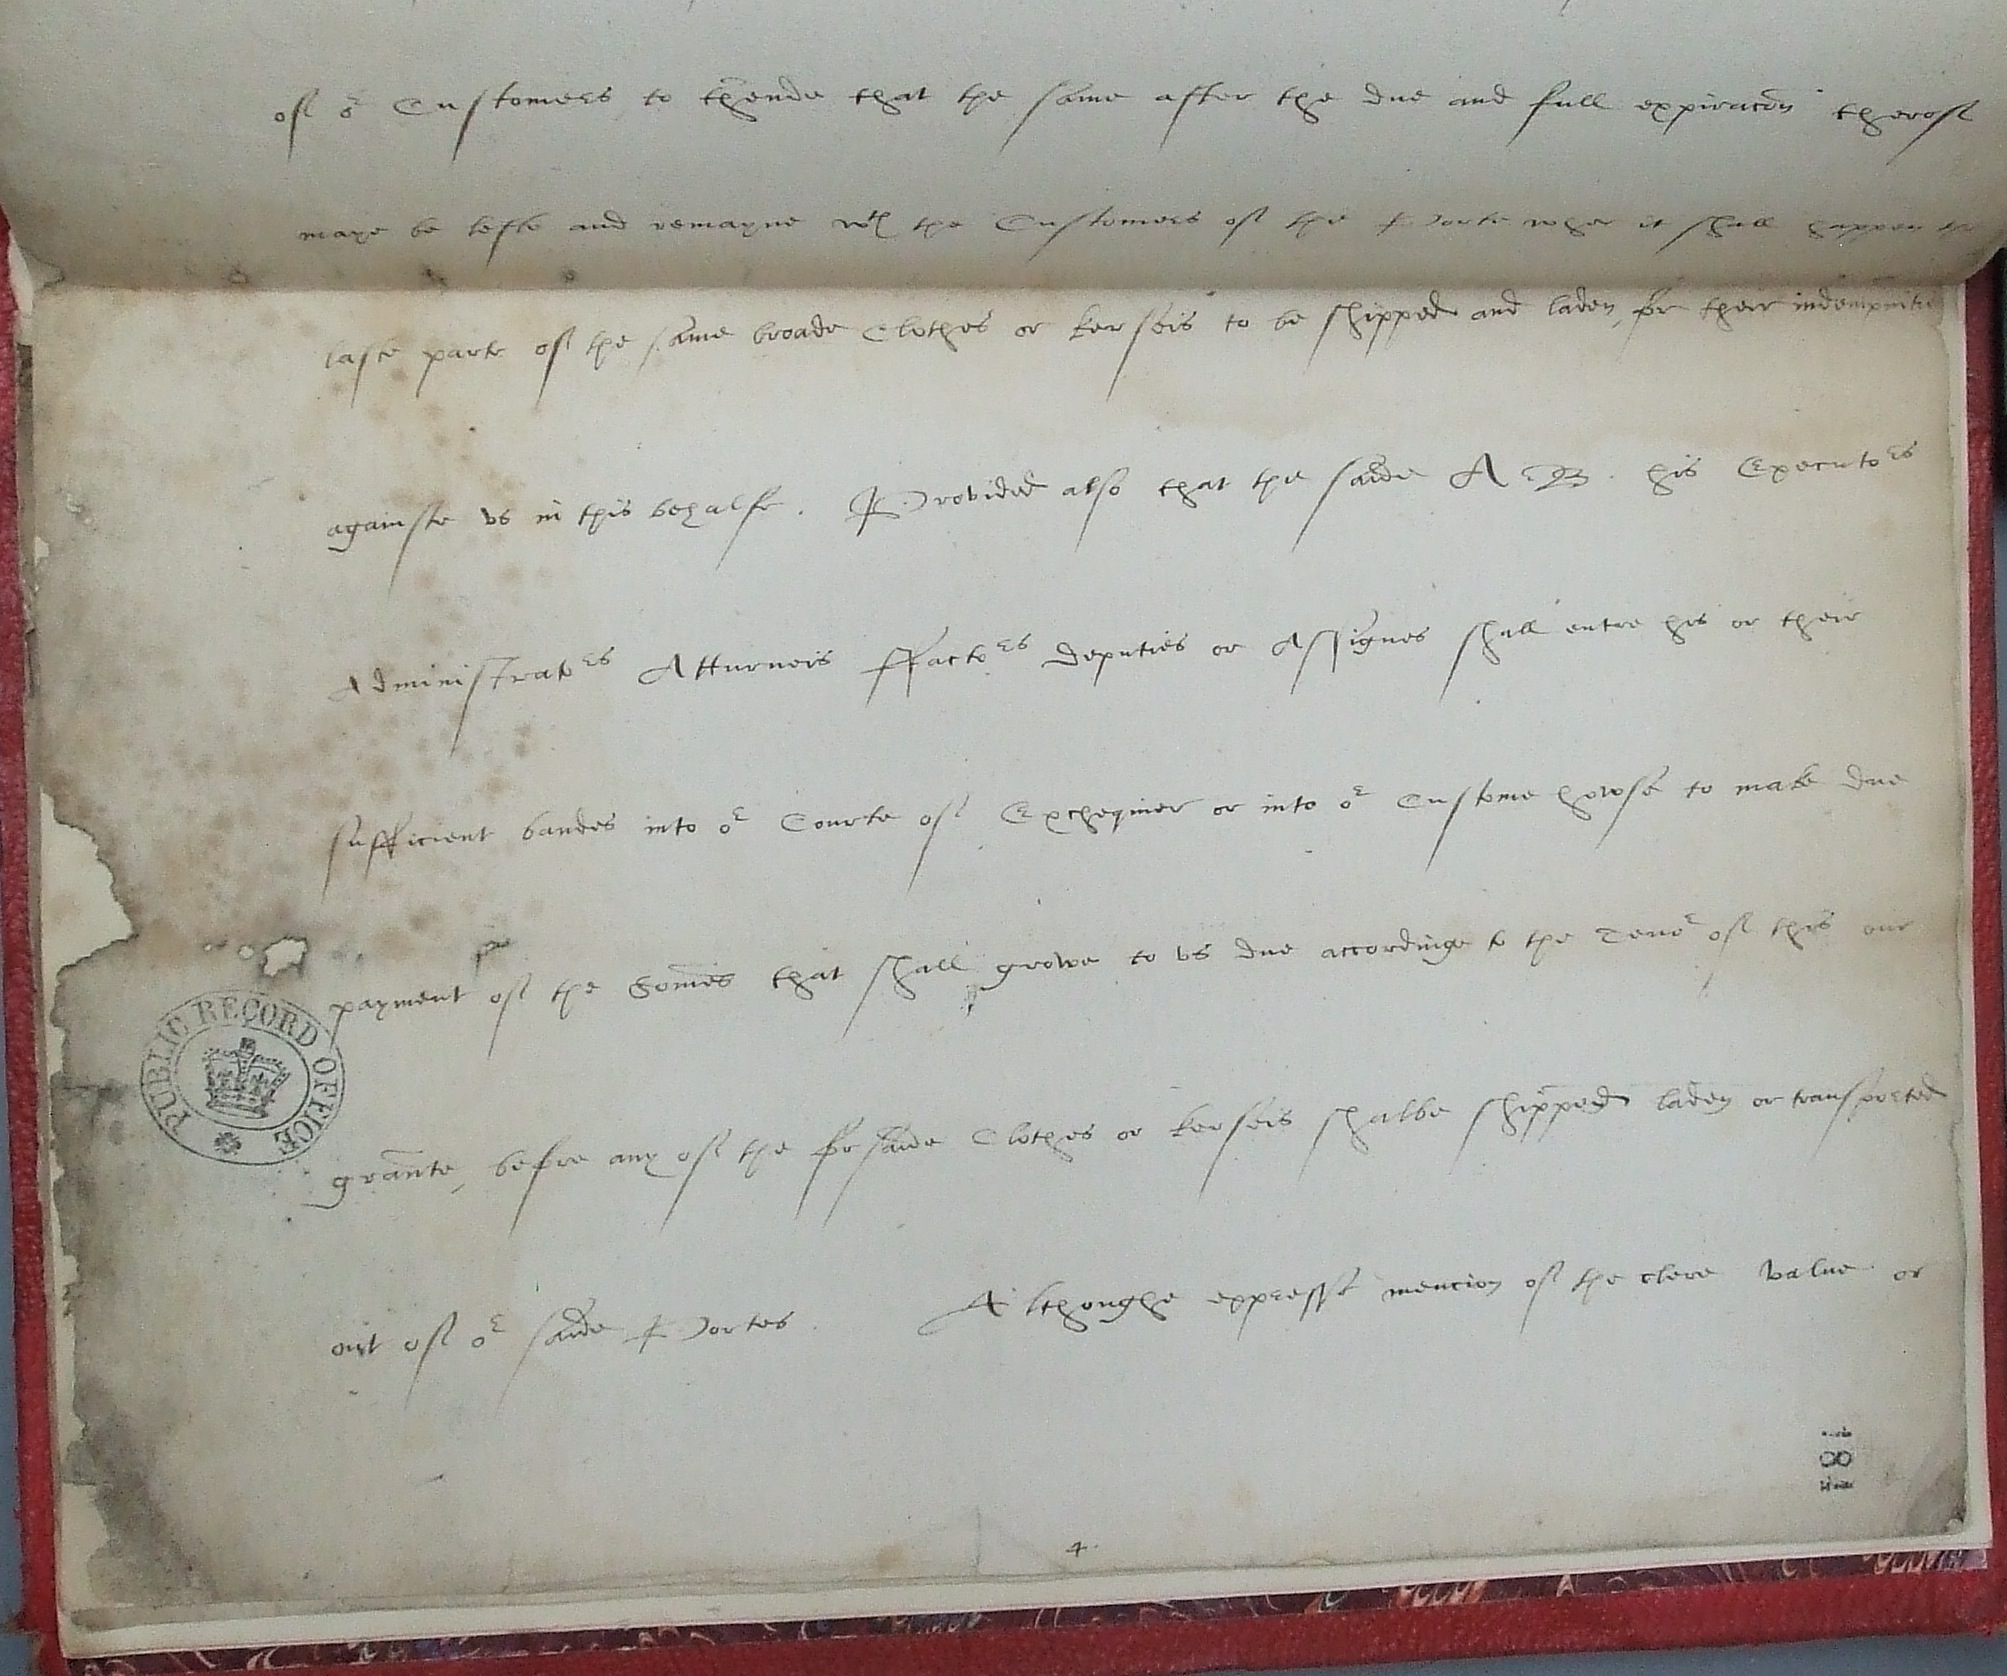 of oʳ Customers to thende that the same after the due and full expiracõn therof
maye be lefte and remayne wᵗʰ the Customers of the Porte wher it shall happen the
laste parte of the same broade Clothes or kerseis to be shipped and laden, for their indempnitie
againste vs in this behalfe. Provided also that the saide A. B. his Executoʳˢ
Administratoʳˢ Atturneis ffactoʳˢ deputies or Assignes shall entre his or their
sufficient bandes into oʳ Courte of Exchequier or into oʳ Custome howse to make due
payment of the Som̃es that shall growe to vs due accordinge to the Tenoʳ of this our
graunte, before any of the forsaide Clothes or kerseis shalbe shipped laden or transported
out of oʳ saide Portes. Althoughe expresse mencion of the clere value or
PUBLIC RECORD OFFICE
181
4.